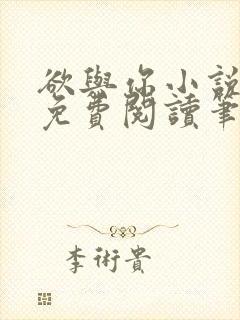 欲與你小說
免費閱讀筆
李術貴